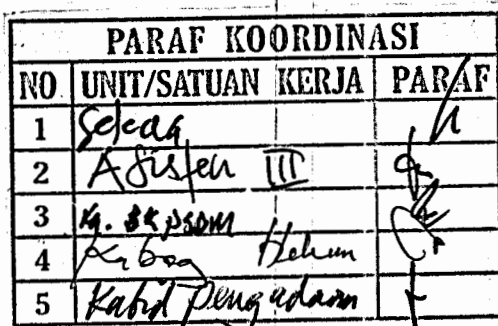 PARAF KOORDINASI
NO UNIT/SATUAN KERJA PARAF
1 Sekda
2 Asisten III
3 Ka. BKPSDM
4 Kabag Hukum
5 Kabid Pengadaan